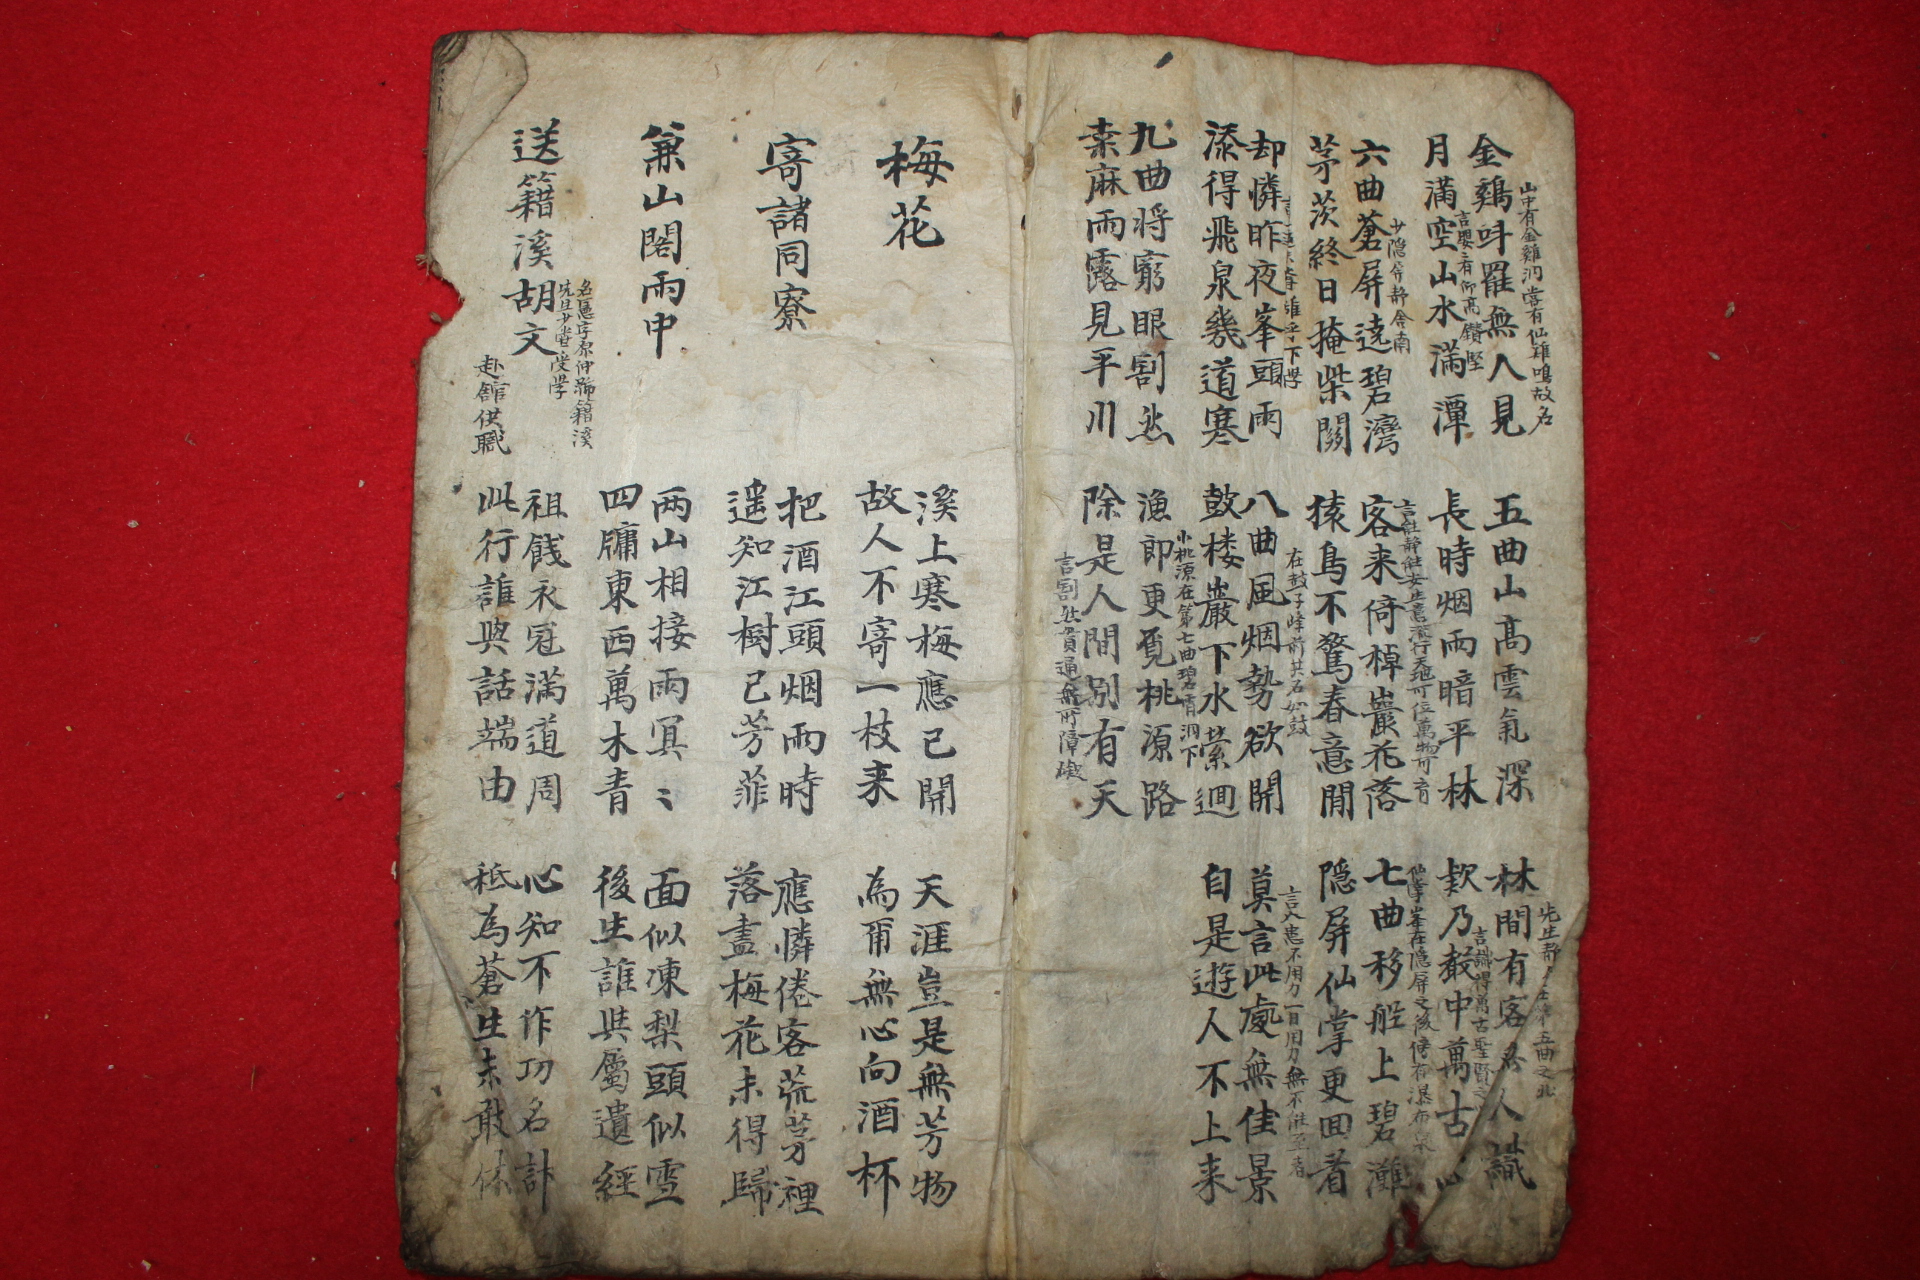 金鷄呌罷無人見
山中有金雞洞嘗有仙雞鳴故名
月滿空山水滿潭
五曲山高雲氣深
長時烟雨暗平林
林間有客無人識
欵乃聲中萬古心
六曲蒼屏遶碧灣
少隱屏靜舍南
茅茨終日掩柴關
客来倚棹巖花落
猿鳥不驚春意閒
七曲移舩上碧灘
隱屏仙掌更回看
却憐昨夜峯頭雨
添得飛泉幾道寒
八曲風烟勢欲開
在鼓子峰前其石如鼓
鼓楼巖下水縈廻
莫言此處無佳景
言人患不用力一日用力無不能至者
自是遊人不上来
九曲將窮眼割然
桒麻雨露見平川
漁郎更覓桃源路
小桃源在第七曲碧霄洞下
除是人間别有天
言割然貫通無所障礙
梅花
溪上寒梅應已開
故人不寄一枝来
天涯豈是無芳物
為甭無心向酒杯
寄諸同寮
把酒江頭烟雨時
遥知江樹已芳菲
應憐倦客荒茅裡
落盡梅花未得歸
兼山閣雨中
两山相接雨冥〻
四牗東西萬木青
面似凍梨頭似雪
後生誰與属遺經
送籍溪胡文
名憲字原仲號籍溪
先生少嘗受學
赴舘供職
祖餞衣冠滿道周
此行誰與話端由
心知不作功名計
秪為蒼生未敢休